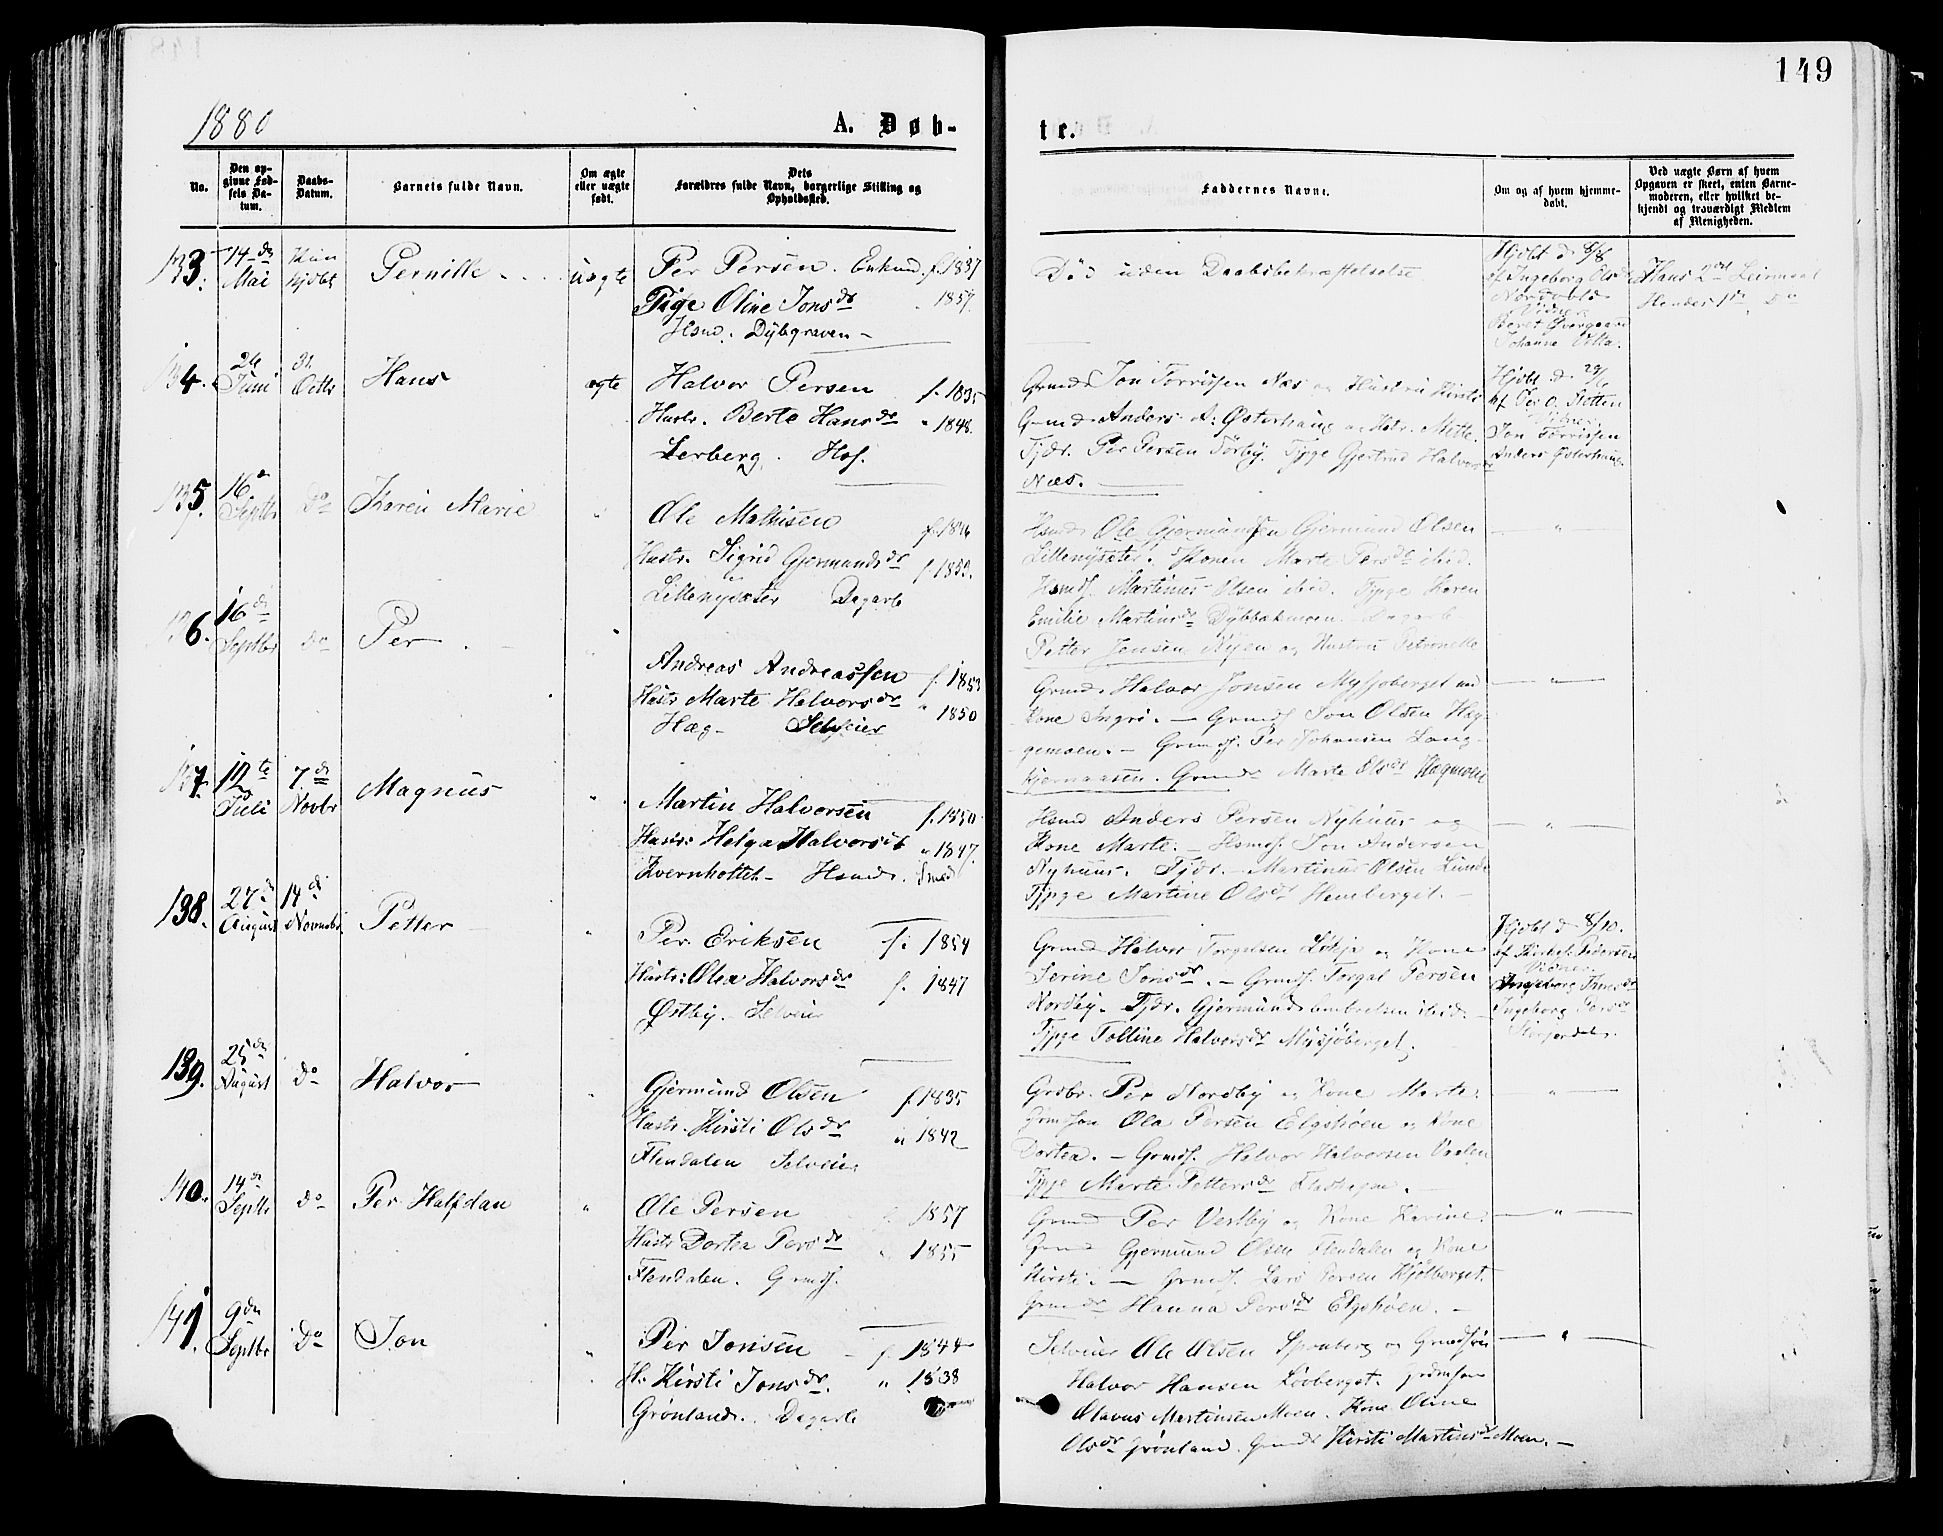 149
1880
A. Døb-
te.
No.
Den op-
givne Fød-
sels Da-
tum.
Daabs-
Datum.
Barnets fulde Navn.
Om ægte
eller uægte
født.
Dets
Forældres fulde Navn, borgerlige Stilling og
Opholdssted.
Faddernes Navne.
Om og af hvem hjemme-
døbt.
Ved uægte Børn af hvem
Opgaven er skeet, enten Barne-
moderen, eller hvilket be-
kjendt og troværdigt Medlem
af Menigheden.
133.
14de
Mai
Kun
hjdbt
Pernille
uægte
Per Persen. Enkmd. f. 1837
Pige Oline Jonsdr 1857.
Hsmd. Dybgraven
Død uden Daabsbekræftelse
Hjdbt d. 8/8
af Ingeborg Olsd
Nordvold
Vidner
Beret Overgaard
Johanne
Hans 2det Leiermaal
Hendes 1te Do
134.
26
Juni
31
Octbr
Hans
ægte
Halvor Persen f. 1835
Hustr. Berte Hansdr " 1848.
Lerberg. Hof.
Grmd. Jon Torrissen Næs og Hustru Kirsti
Grmd. Anders A. Østerhaug og Hstr. Mette.
Tjdr. Per Persen Törby. Tpge Gjertrud Halvorsdr
Næs.
Hjdbt d. 29/6
af Per O. Sletten
Vidner
Jon Torrissen
Anders Østerhaug.
135.
16de
Septbr
do
Karen Marie
"
Ole Mathisen f. 1846
Hustr. Sigrid Gjermundsdr f. 1853.
Lillenysæter Dagarb
Hsmd. Ole Gjermundsen Gjermund Olsen
Lillenysæter. Konen Marte Persdr ibid.
Hsmds. Martinus Olsen ibid. Tpge Karen
Emilie Martinsdr Dybbakmoen. Dagarb
Petter Jensen Nyen og Hustru Petronelle
"
136.
16de
Septbr
do
Per
Andreas Andreassen f. 1853
Hustr Marte Halvorsdr " 1850
Hæg Selveier
Grmd. Halvor Jonsen Mysjoberget
Kone Ingrø. — Grmds. Jon Olsen Hæg-
gemoen. — Grmds. Per Johansen Lang-
kjernaasen. Grmdr Marte Olsdr Hægmoen
"
137.
12te
Juli
7de
Novbr
Magnus
"
Martin Halvorsen f. 1850
Hustr: Helga Halvorsdt " 1847.
Kvernholtet Hsmd. Smed
Hsmd Anders Persen Nyhuus og
Kone Marte. — Hsmds. Jon Andersen
Nyhuus. Tjdr. Martinus Olsen Lunde
Tpge Martine Olsdr Hemberget.
"
138.
27de
August
14de
Novembr
Petter
"
Per Eriksen f: 1854
Hustr: Olea Halvorsdr f. 1847
Østby. Selveier
Grmd Halvor Torgalsen Løkje og Kone
Serine Jonsdr. — Grmds. Torgal Persen
Nordby. Tjdr. Gjermund Embretsen ibid.
Tpge Tolline Halvorsdr Mysjöberget.
Hjdbt d. 8/10.
af Pedersen
Vidner
Ingeborg Jonsdr
Ingeborg Persdr
139.
25de
August
do
Halvor
"
Gjermund Olsen f. 1835
Hustr. Kirsti Olsdr " 1842
Flendalen Selveier
Grdbr. Per Nordby og Kone Marte.
Grmdson Ola Persen Elgshøen og Kone
Dortea. — Grmds. Halvor Halvorsen Vaalen
Tpge Marte Pettersdr
"
140.
14de
Septbr
do
Per Halfdan
"
Ole Persen 1857
Hustr Dortea Persdr 1855
Flendalen. Grmds.
Grmd Per Vestby og Kone Karine.
Grmd Gjermund Olsen Flendalen og Kone
Kirsti. — Grmds. Lars Persen Kjølberget.
Grmdr Hanna Persdr Elgshøen.
"
141.
9de
Septbr
Do
Jon
"
Per Jonsen f. 1844
H. Kirsti Jonsdr. " 1838
Grönland. Dagarb
Selveier Ole Olsen Sponberg og Grmdsøn
Halvor Hansen Løvberget. Grdmson
Olavus Martinsen Moen. Kone Oline
Olsdr Grönland. Grmdr Kirsti Martinsdr Moen.
"